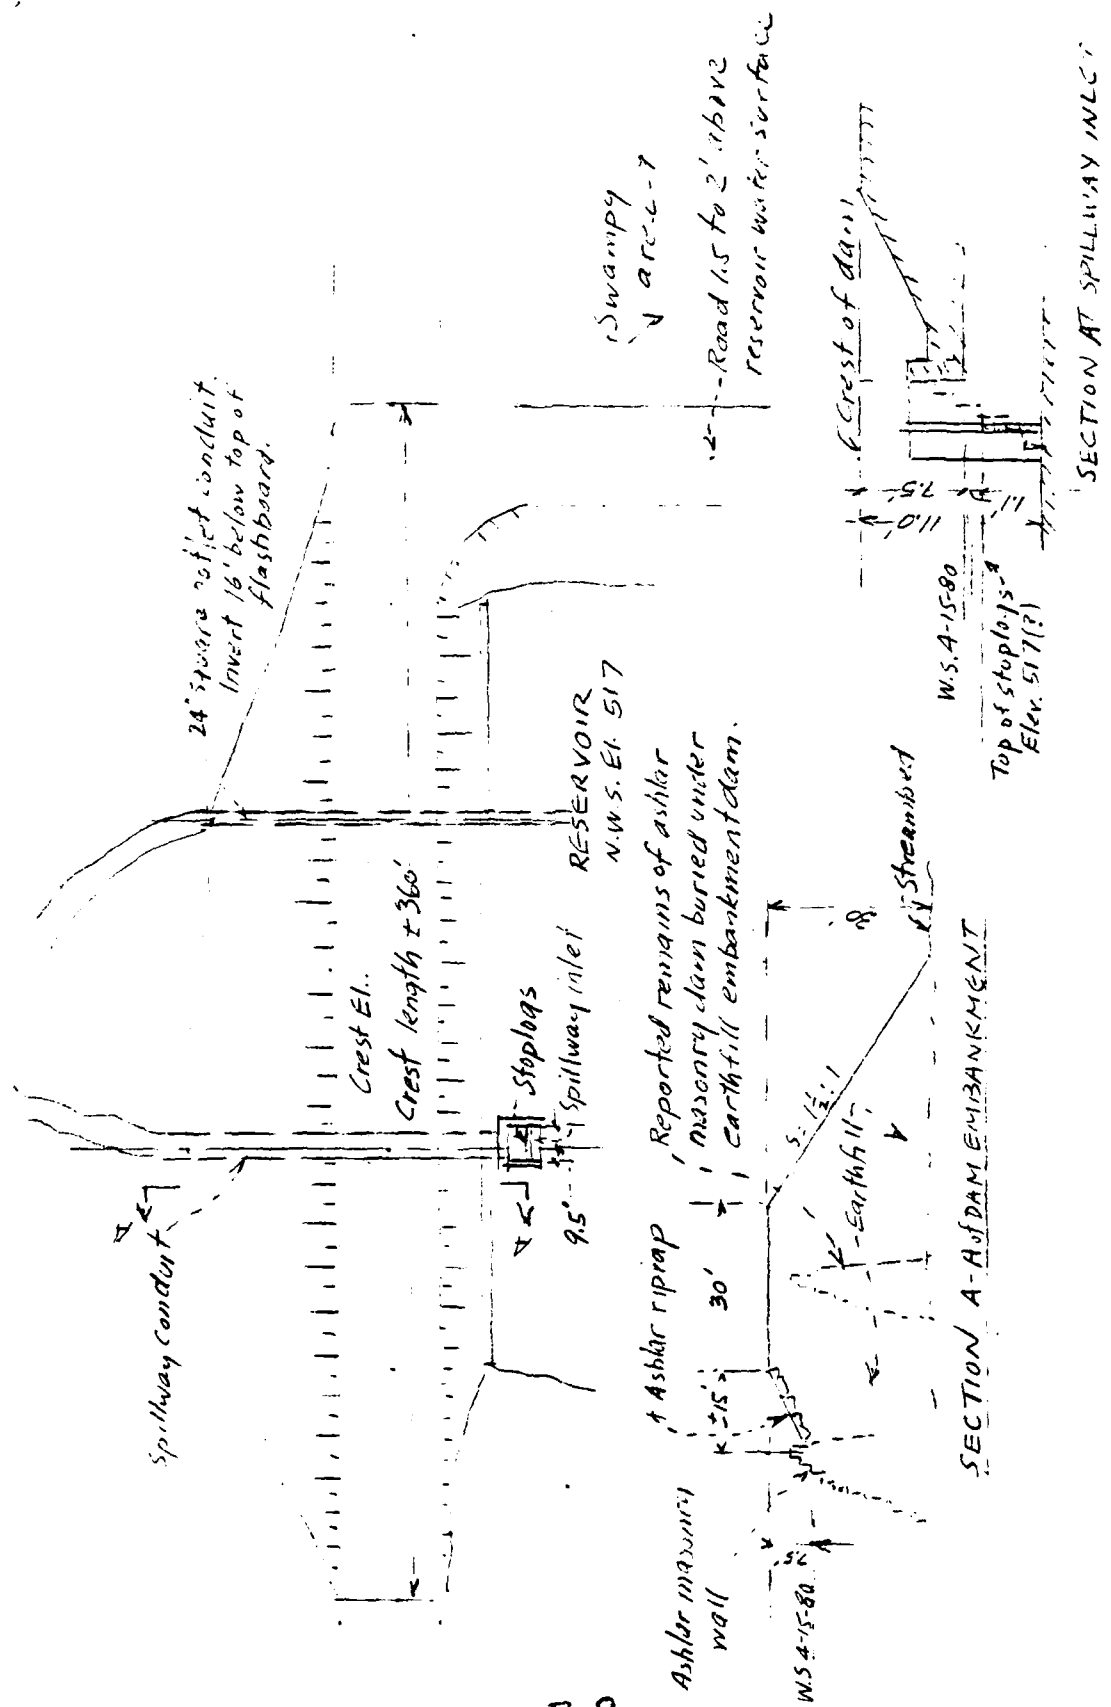 Spillway conduit
24" square outlet conduit.
Invert 16' below top of
flashboard.
Crest El..
Crest length ± 360'
Stoplogs
Spillway inlet
9.5'
RESERVOIR
N.W.S. El. 517
Swampy
area
Road 1.5 to 2' above
reservoir water surface
Ashlar masonry
wall
Ashlar riprap
Reported remains of ashlar
masonry dam buried under
earthfill embankment dam.
±15'
30'
7.5'
W.S 4-15-80
S = 1½ : 1
Earthfill
Streambed
SECTION A-A of DAM EMBANKMENT
Crest of dam
11.0'
7.5'
1.1'
W.S. 4-15-80
Top of stoplogs
Elev. 517(?)
SECTION AT SPILLWAY INLET